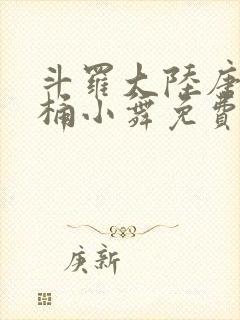 斗羅大陸唐
桶小舞免費
庚新